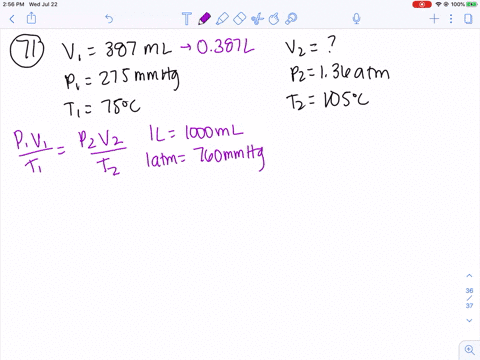 2:56 PM Wed Jul 22
100%
71
V₁ = 387 mL → 0.387L
P₁ = 275 mmHg
T₁ = 75°C
V₂ = ?
P₂ = 1.36 atm
T₂ = 105°C
P₁V₁/T₁ = P₂V₂/T₂
1L = 1000mL
1atm = 760mmHg
36
/
37